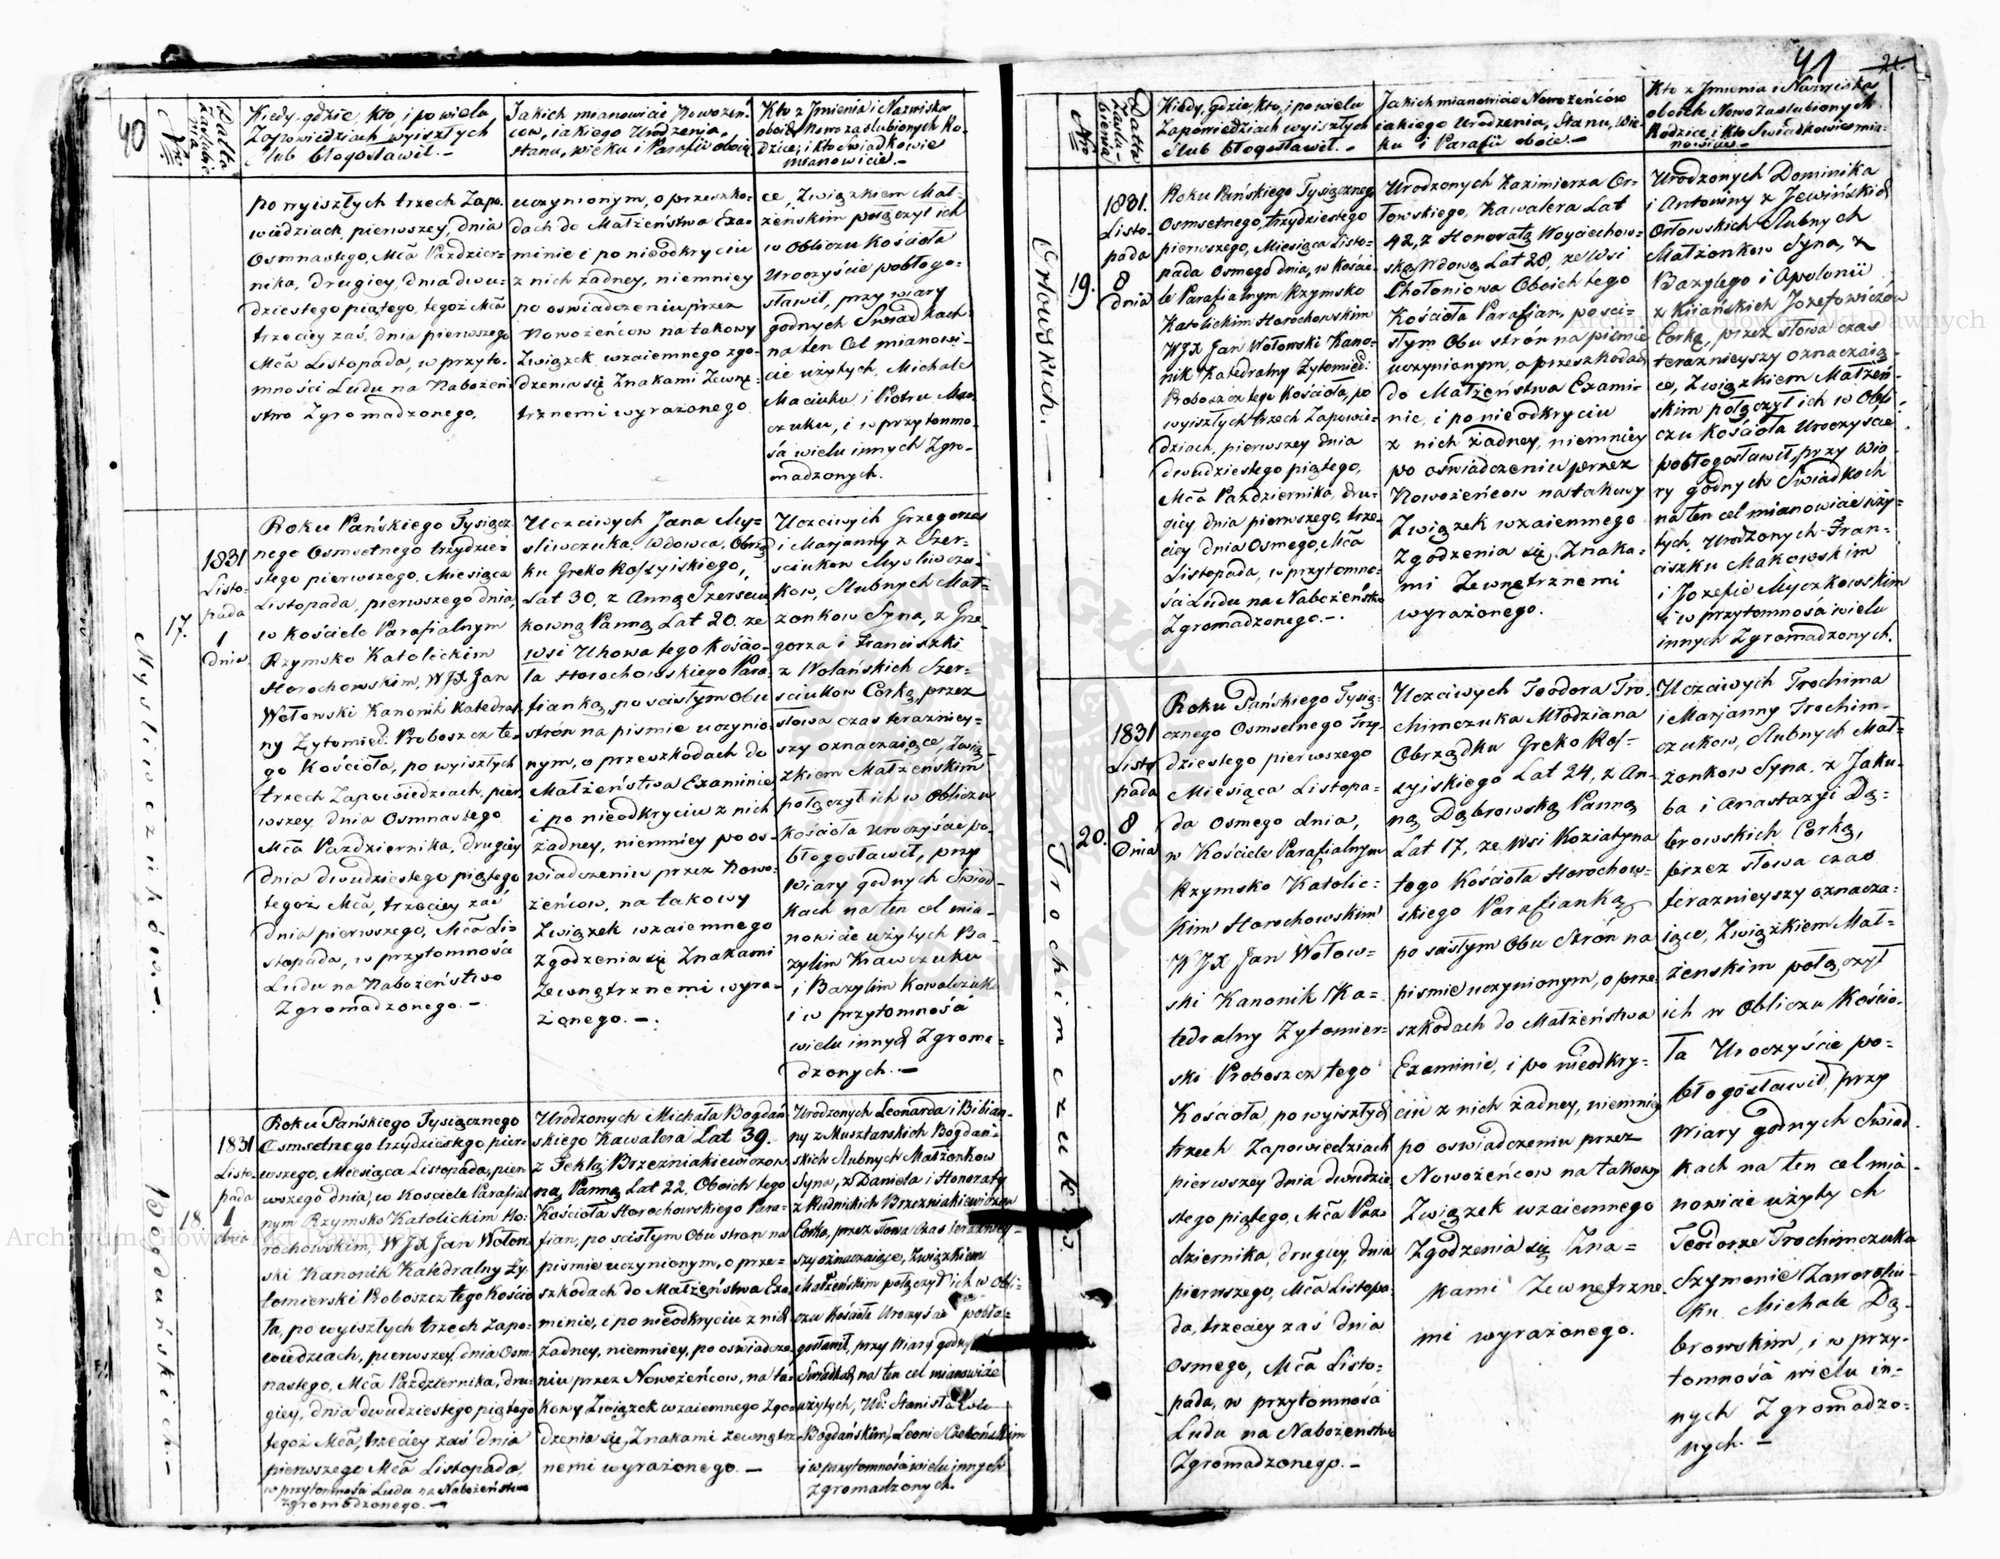 40
Nro
Datta Zaslubienia
Kiedy, gdzie, kto, i po wielu
Zapowiedziach wyiszłych
Slub błogosławił. –
Jakich mianowicie Nowożeń-
cow, iakiego Urodzenia,
stanu, wieku i Parafii oboie
Kto z Jmienia i Nazwiska
oboich Nowo zaslubionych Ro-
dzice, i kto świadkowie
mianowicie. –
po wyiszłych trzech Zapo-
wiedziach, pierwszey, dnia
Osmnastego, Mca Pazdzier-
nika, drugiey, dnia dwu-
dziestego piątego, tegoż Mca
trzeciey zaś, dnia pierwszego
Mca Listopada, w przyto-
mności Ludu na Nabożeń-
stwo Zgromadzonego.
uczynionym, o przeszko-
dach do Małżeństwa Exa-
minie i po nieodkryciu
z nich żadney, niemniey
po oswiadczeniu przez
Nowożeńcow na takowy
Związek wzaiemnego zgo-
dzenia się Znakami Zewnę-
trznemi wyrażonego
ce, Związkiem Mał-
żeńskim połączył ich
w Obliczu Kościoła
Uroczyście pobłogo-
sławił, przy wiary
godnych Swiadkach
na ten Cel mianowi-
cie użytych, Michale
Maciuku i Piotru Maz-
czuku, i w przytomno-
ści wielu innych Zgro-
madzonych.
Mysliwczuków. –
17.
1831
Listo-
pada
1
dnia
Roku Pańskiego Tysiącz-
nego Osmsetnego trzydzie-
stego pierwszego, Miesiąca
Listopada, pierwszego dnia,
w Kościele Parafialnym
Rzymsko Katolickim
Horochowskim, WJX Jan
Wołowski Kanonik Katedral-
ny Żytomier: Proboszcz te-
go Kościoła, po wyiszłych
trzech Zapowiedziach, pier-
wszey dnia Osmnastego
Mca Pazdziernika, drugiey
dnia dwudziestego piątego
tegoż Mca, trzeciey zaś
dnia pierwszego, Mca Li-
stopada, w przytomności
Ludu na Nabożeństwo
Zgromadzonego. –
Uczciwych Jana My-
sliwczuka, Wdowca, Obrząd-
ku Greko Rossyiskiego,
Lat 30, z Anną Szersciu-
kowną Panną Lat 20. ze
wsi Uhowa tego Kościo-
ła Horochowskiego Para-
fianką, po scisłym Obu
strón na pismie uczynio-
nym, o przeszkodach do
Małżeństwa Examinie
i po nieodkryciu z nich
żadney, niemniey po os-
wiadczeniu przez Nowo-
żeńcow, na takowy
Związek wzaiemnego
zgodzenia się Znakami
Zewnętrznemi wyra-
żonego. –.
Uczciwych Grzegorza
i Marjanny z Szer-
sciukow Mysliwczu-
kow, Slubnych Mał-
żonkow Syna, z Grze-
gorza i Franciszki
z Wolańskich Szer-
sciukow Corką, przez
słowa czas terazniey-
szy oznaczaiące, Zwią-
zkiem Małżeńskim
połączył ich w Obliczu
Kościoła Uroczyście po-
błogosławił, przy
wiary godnych Swiad-
kach na ten cel mia-
nowicie użytych Ba-
zylim Krawczuku
i Bazylim Kowalczuk
i w przytomności
wielu innych Zgroma-
dzonych. –
Bogdańskich. –
18.
1831
Listo-
pada
1
dnia
Roku Pańskiego Tysiącznego
Osmsetnego trzydziestego pier-
wszego, Miesiąca Listopada, pier-
wszego dnia, w Kosciele Parafial-
nym Rzymsko Katolickim Ho-
rochowskim, WJX Jan Wołow-
ski Kanonik Katedralny Ży-
tomierski Proboszcz tego Kościo-
ła, po wyiszłych trzech Zapo-
wiedziach, pierwszey, dnia Osm-
nastego, Mca Pazdziernika, dru-
giey, dnia dwudziestego piątego
tegoż Mca, trzeciey zaś dnia
pierwszego Mca Listopada,
w przytomności Ludu na Nabożeństwo
Zgromadzonego. –
Urodzonych Michała Bogdań-
skiego Kawalera Lat 39.
z Teklą Brzezniakiewiczow-
ną, Panną Lat 22, Oboich tego
Kościoła Horochowskiego Para-
fian, po scisłym Obu stron na
pismie uczynionym, o prze-
szkodach do Małżeństwa Exa-
minie, i po nieodkryciu z nich
żadney, niemniey, po oswiadcze-
niu przez Nowożeńcow, na ta-
kowy Związek wzaiemnego Zgo-
dzenia się, Znakami zewnętrz-
nemi wyrażonego. –
Urodzonych Leonarda i Bibian-
ny z Musztarskich Bogdań-
skich Slubnych Małżonkow
Syna, z Daniela i Honoraty
z Rudnickich Brzezniakiewiczow
Corką, przez słowa czas terazniey-
szy oznaczaiące, Związkiem
Małżeńskim połączył ich w Obli-
czu Kościoła Uroczyście pobło-
gosławił, przy Wiary godnych
Swiadkach na ten cel mianowicie
użytych, Ur: Stanisła
Bogdańskim, Leonie
i w przytomności wielu innych
Zgromadzonych.
41
21.
Nro
Datta Zaslubienia
Kiedy, gdzie, kto, i po wielu
Zapowiedziach wyiszłych
Slub błogosławił. –
Jakich mianowicie Nowożeńców
iakiego Urodzenia, Stanu, Wie-
ku i Parafii oboie. –
Kto z Jmienia i Nazwiska
oboich Nowo Zaslubionych
Rodzice, i kto Swiadkowie mia-
nowicie –
Orłowskich. –
19.
1831.
Listo-
pada
8
dnia
Roku Pańskiego Tysiącznego
Osmsetnego, trzydziestego
pierwszego, Miesiąca Listo-
pada Osmego dnia, w Koście-
le Parafialnym Rzymsko
Katolickim Horochowskim
WJX Jan Wołowski Kano-
nik Katedralny Zytomier:
Proboszcz tego Kościoła, po
wyiszłych trzech Zapowie-
dziach, pierwszey dnia
dwudziestego piątego,
Mca Pazdziernika, dru-
giey dnia pierwszego, trze-
ciey dnia Osmego, Mca
Listopada, w przytomno-
ści Ludu na Nabożeństwo
Zgromadzonego. –.
Urodzonych Kazimierza Or-
łowskiego, Kawalera Lat
42, z Honoratą Woyciechow-
ską Wdową Lat 28, ze Wsi
Chołoniowa Oboich tego
Kościoła Parafian, po sci-
słym Obu strón na pismie
uczynionym, o przeszkodach
do Małżeństwa Exami-
nie, i po nieodkryciu
z nich żadney, niemniey
po oświadczeniu przez
Nowożeńcow na takowy
Związek wzaiemnego
Zgodzenia się, Znaka-
mi Zewnętrznemi
wyrażonego.
Urodzonych Dominika
i Antoniny z Jewińskich
Orłowskich Slubnych
Małżonkow Syna, z
Bazylego i Apolonii
z Kiiańskich Jozefowiczów
Corką, przez słowa czas
teraznieyszy oznaczaią-
ce, Związkiem Małżeń-
skim połączył ich w Obli-
czu Kościoła Uroczyście
pobłogosławił, przy Wia-
ry godnych Swiadkach
na ten cel mianowicie uży-
tych, Urodzonych Fran-
ciszku Makowskim
i Jozefie Myczkowskim
i w przytomności wielu
innych Zgromadzonych.
Trochimczuków.
20.
1831
Listo
pada
8
Dnia
Roku Pańskiego Tysią-
cznego Osmsetnego Trzy-
dziestego pierwszego
Miesiąca Listopa-
da Osmego dnia,
w Kościele Parafialnym
Rzymsko Katolic-
kim Horochowskim
WJX Jan Wołow-
ski Kanonik Ka-
tedralny Zytomier-
ski Proboszcz tego
Kościoła, po wyiszłych
trzech Zapowiedziach
pierwszey dnia dwudzie-
stego piątego, Mca Paz-
dziernika, drugiey, dnia
pierwszego, Mca Listopa-
da, trzeciey zaś dnia
Osmego, Mca Listo-
pada, w przytomności
Ludu na Nabożeństwo
Zgromadzonego. –
Uczciwych Teodora Tro-
chimczuka Młodziana
Obrządku Greko Ros-
syiskiego Lat 24, z An-
ną Dąbrowską Panną
Lat 17, ze Wsi Koziatyna
tego Kościoła Horochow-
skiego Parafianką,
po scisłym Obu Strón na
pismie uczynionym, o prze-
szkodach do Małżeństwa
Examinie, i po nieodkry-
ciu z nich żadney, niemniey
po oswiadczeniu przez
Nowożeńcow na takowy
Związek wzaiemnego
Zgodzenia się Zna-
kami Zewnętrzne-
mi wyrażonego.
Uczciwych Trochima
i Marjanny Trochim-
czukow, Slubnych Mał-
żonkow Syna, z Jaku-
ba i Anastazyi Dą-
browskich Corką,
przez słowa czas
teraznieyszy oznacza-
iące, Związkiem Mał-
żenskim połączył
ich w Obliczu Kościo-
ła Uroczyście po-
błogosławił, przy
Wiary godnych Swiad-
kach na ten cel mia-
nowicie użytych
Teodorze Trochimczuku
Szymonie
ku, Michale Dą-
browskim, i w przy-
tomności wielu in-
nych Zgromadzo-
nych. –
Archiwum Główne Akt Dawnych
Archiwum Główne Akt Dawnych